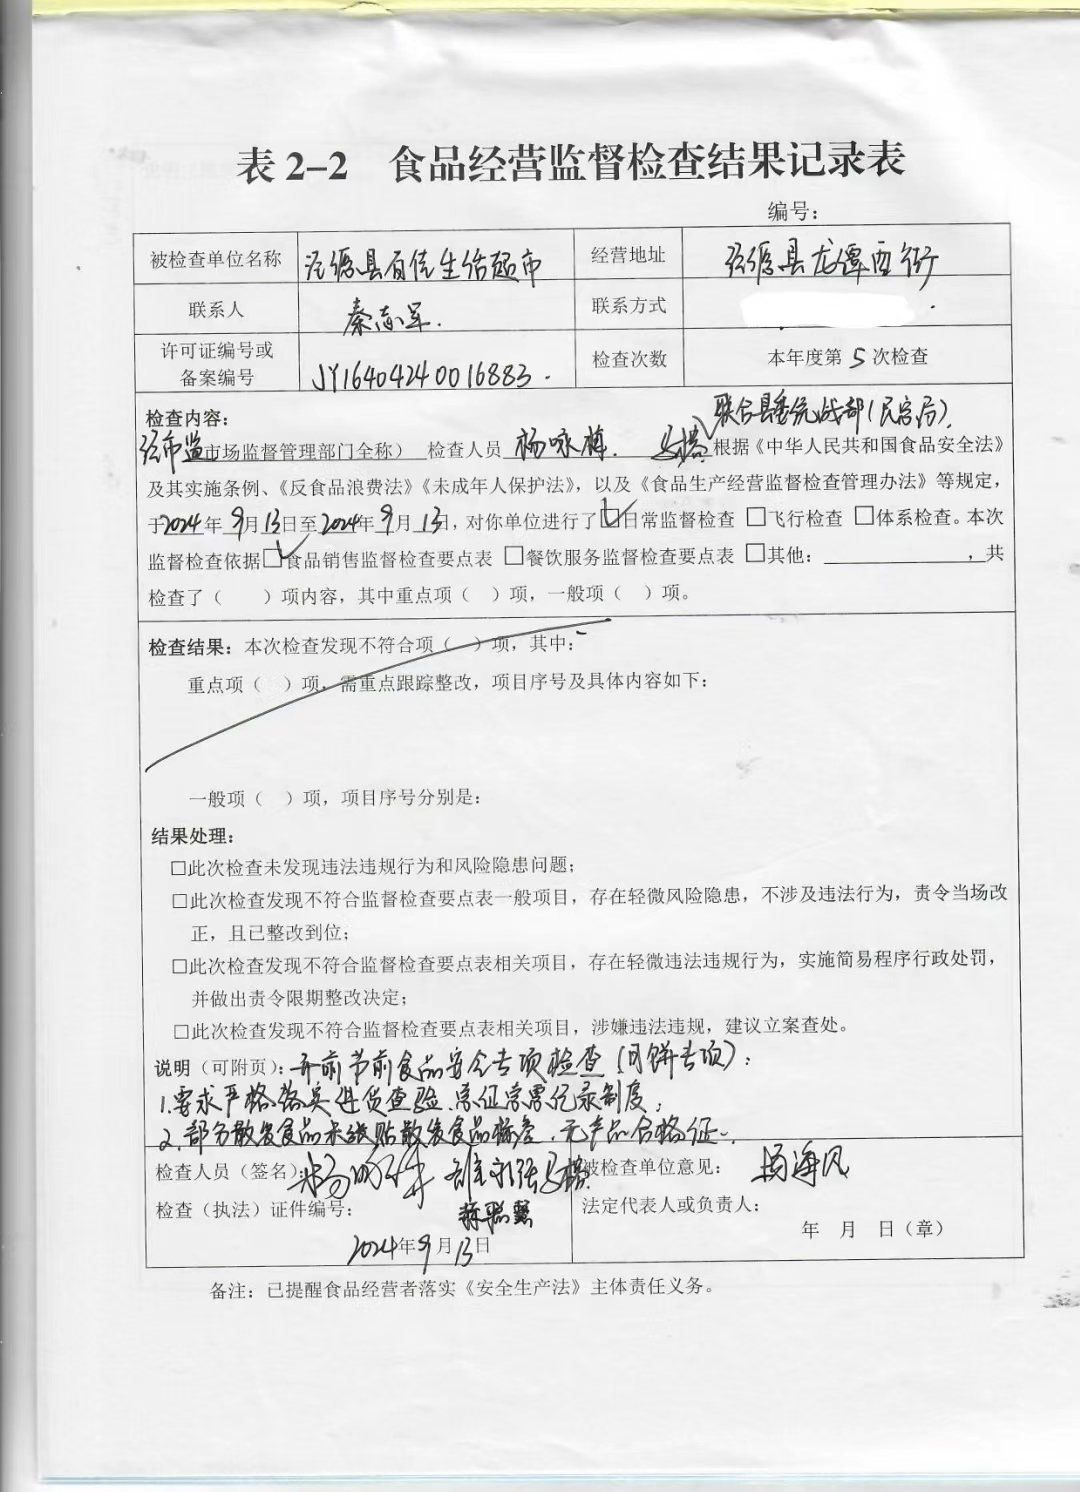 表 2-2 食品经营监督检查结果记录表
编号：
被检查单位名称 泾源县百佳生活超市 经营地址 泾源县龙潭西街
联系人 秦志军. 联系方式
许可证编号或备案编号 JY16404240016883. 检查次数 本年度第 5 次检查
联合县委统战部(民宗局),
检查内容：
泾市监市场监督管理部门全称） 检查人员 杨咏梅. 根据《中华人民共和国食品安全法》
及其实施条例、《反食品浪费法》《未成年人保护法》，以及《食品生产经营监督检查管理办法》等规定，
于2024年 9月13日至2024年 9月 13日，对你单位进行了☑日常监督检查 □飞行检查 □体系检查。本次
监督检查依据☑食品销售监督检查要点表 □餐饮服务监督检查要点表 □其他：，共
检查了（ ）项内容，其中重点项（ ）项，一般项（ ）项。
检查结果：本次检查发现不符合项（ ）项，其中：
重点项（ ）项，需重点跟踪整改，项目序号及具体内容如下：
一般项（ ）项，项目序号分别是：
结果处理：
□此次检查未发现违法违规行为和风险隐患问题；
□此次检查发现不符合监督检查要点表一般项目，存在轻微风险隐患，不涉及违法行为，责令当场改
正，且已整改到位；
□此次检查发现不符合监督检查要点表相关项目，存在轻微违法违规行为，实施简易程序行政处罚，
并做出责令限期整改决定；
□此次检查发现不符合监督检查要点表相关项目，涉嫌违法违规，建议立案查处。
说明（可附页）：开前节前食品安全专项检查(月饼专项)：
1.要求严格落实进货查验、索证索票记录制度；
2.部分散装食品未张贴散装食品标签，无产品合格证。
检查人员（签名）： 被检查单位意见： 杨海风
检查（执法）证件编号： 法定代表人或负责人：
2024年9月13日 年 月 日（章）
备注：已提醒食品经营者落实《安全生产法》主体责任义务。